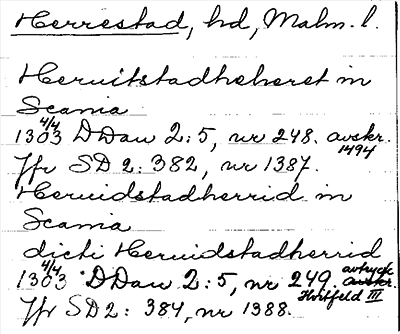 Herrestad, hd, Malm. l.
Heruitstadheheret in
Scania
4/4
1303 DDan 2:5, nr 248. avskr.
1494
Jfr SD 2: 382, nr 1387.
Heruidstadherrid in
Scania
dicti Heruidstadherrid
4/4
1303 DDan 2:5, nr 249. avtryck
avskr.
Hvitfeld III
Jfr SD 2: 384, nr 1388.